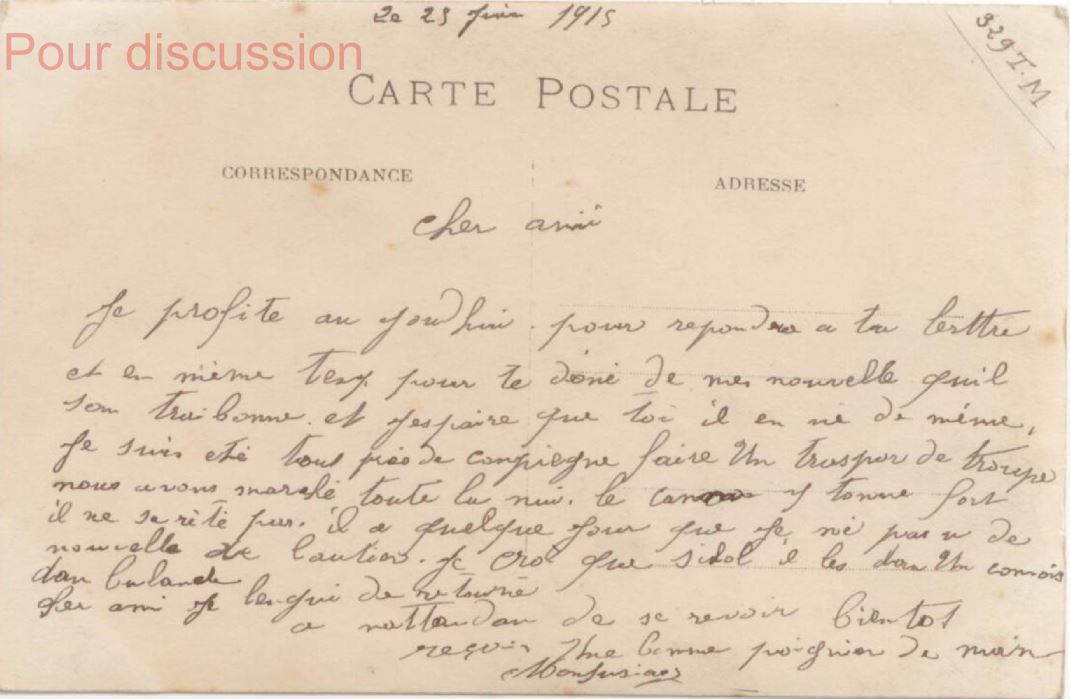 Le 25 Juin 1915
329 T. M
Pour discussion
CARTE POSTALE
CORRESPONDANCE
ADRESSE
cher ami
Je profite au jourdhui. pour repondre a ta lerttre
et en mème temp pour te doné de mes nouvelle quil
son trai bonne. et jespaire que toi il en né de même,
Je suis eté tous près de conpiegne faire Un traspor de troupe
nous avons marché toute la nui. le canon y tonne fort
il ne sa rèté pas. il a quelque jour que je né pas u de
nouvelle de lautier. je croi que il les dan Un convois
dan
cher ami je de retourné
a nattandan de se revoir bientot
reçois Une bonne poignier de main